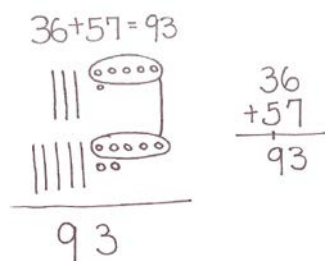 36+57=93
93
36
+57
93